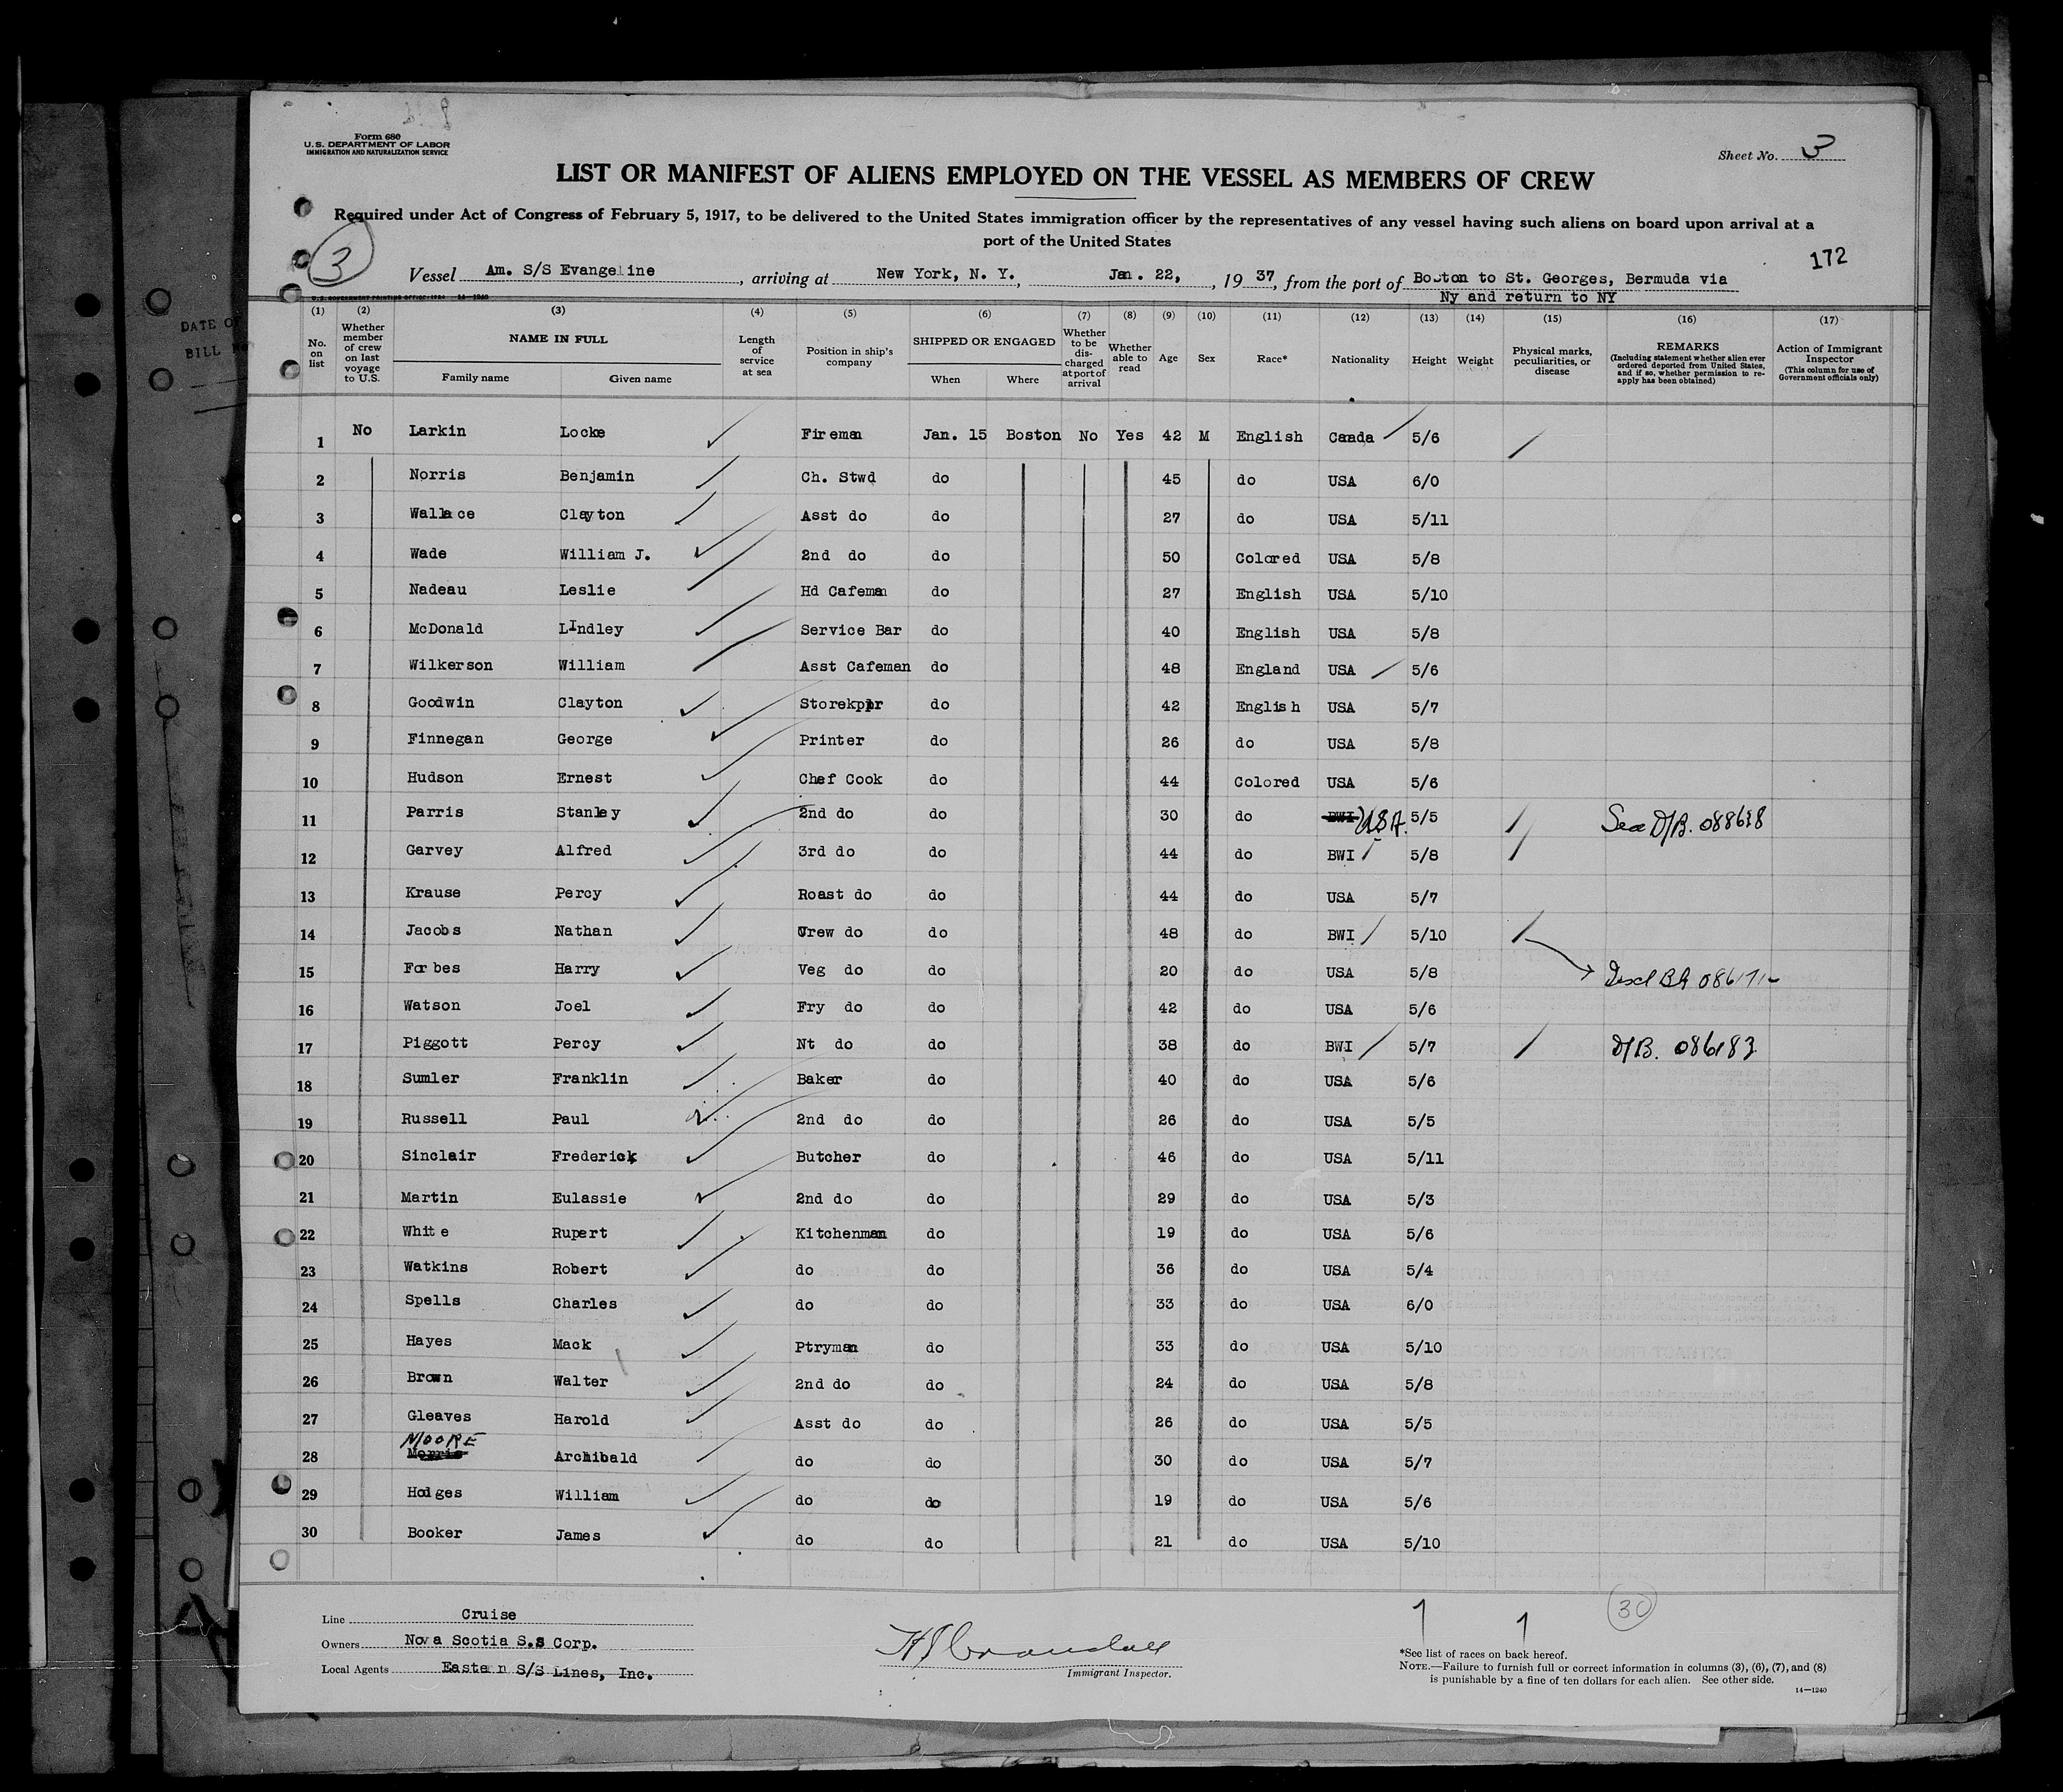 Form 680
U. S. DEPARTMENT OF LABOR
IMMIGRATION AND NATURALIZATION SERVICE
Sheet No. 3
LIST OR MANIFEST OF ALIENS EMPLOYED ON THE VESSEL AS MEMBERS OF CREW
Required under Act of Congress of February 5, 1917, to be delivered to the United States immigration officer by the representatives of any vessel having such aliens on board upon arrival at a
port of the United States
3
172
Vessel Am. S/S Evangeline, arriving at New York, N. Y., Jan. 22, , 19 37, from the port of Boston to St. Georges, Bermuda via
Ny and return to NY
U. S. GOVERNMENT PRINTING OFFICE: 1934 14—1240
(1) (2) (3) (4) (5) (6) (7) (8) (9) (10) (11) (12) (13) (14) (15) (16) (17)
No. on list
Whether member of crew on last voyage to U.S.
NAME IN FULL
Family name Given name
Length of service at sea
Position in ship's company
SHIPPED OR ENGAGED
When Where
Whether to be discharged at port of arrival
Whether able to read
Age Sex Race* Nationality Height Weight
Physical marks, peculiarities, or disease
REMARKS
(Including statement whether alien ever ordered deported from United States, and if so, whether permission to reapply has been obtained)
Action of Immigrant Inspector
(This column for use of Government officials only)
1 No Larkin Locke Fireman Jan. 15 Boston No Yes 42 M English Canada 5/6
2 Norris Benjamin Ch. Stwd do 45 do USA 6/0
3 Wallace Clayton Asst do do 27 do USA 5/11
4 Wade William J. 2nd do do 50 Colored USA 5/8
5 Nadeau Leslie Hd Cafeman do 27 English USA 5/10
6 McDonald LIndley Service Bar do 40 English USA 5/8
7 Wilkerson William Asst Cafeman do 48 England USA 5/6
8 Goodwin Clayton Storekppr do 42 English USA 5/7
9 Finnegan George Printer do 26 do USA 5/8
10 Hudson Ernest Chef Cook do 44 Colored USA 5/6
11 Parris Stanley 2nd do do 30 do BWI USA. 5/5 See D/B. 088618
12 Garvey Alfred 3rd do do 44 do BWI 5/8
13 Krause Percy Roast do do 44 do USA 5/7
14 Jacobs Nathan Crew do do 48 do BWI 5/10
15 Forbes Harry Veg do do 20 do USA 5/8
16 Watson Joel Fry do do 42 do USA 5/6
17 Piggott Percy Nt do do 38 do BWI 5/7 D/B. 086183
18 Sumler Franklin Baker do 40 do USA 5/6
19 Russell Paul 2nd do do 26 do USA 5/5
20 Sinclair Frederick Butcher do 46 do USA 5/11
21 Martin Eulassie 2nd do do 29 do USA 5/3
22 White Rupert Kitchenman do 19 do USA 5/6
23 Watkins Robert do do 36 do USA 5/4
24 Spells Charles do do 33 do USA 6/0
25 Hayes Mack Ptryman do 33 do USA 5/10
26 Brown Walter 2nd do do 24 do USA 5/8
27 Gleaves Harold Asst do do 26 do USA 5/5
MOORE
28 Morris Archibald do do 30 do USA 5/7
29 Hodges William do do 19 do USA 5/6
30 Booker James do do 21 do USA 5/10
30
Line Cruise
Owners Nova Scotia S.s Corp.
Local Agents Eastern S/S Lines, Inc.
Immigrant Inspector.
*See list of races on back hereof.
NOTE.—Failure to furnish full or correct information in columns (3), (6), (7), and (8)
is punishable by a fine of ten dollars for each alien. See other side.
14—1240
DATE OF
BILL